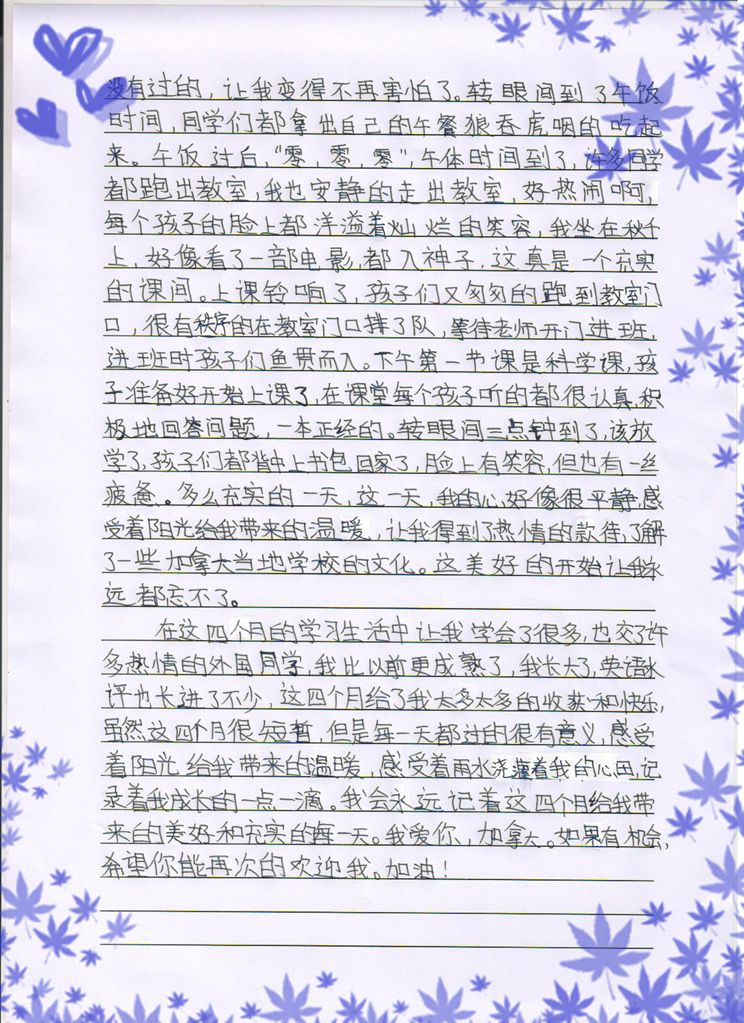 没有过的，让我变得不再害怕了。转眼间到了午饭
时间，同学们都拿出自己的午餐狼吞虎咽的吃起
来。午饭过后，“零，零，零”，午休时间到了，许多同学
都跑出教室，我也安静的走出教室，好热闹啊，
每个孩子的脸上都洋溢着灿烂的笑容，我坐在秋千
上，好像看了一部电影，都入神了，这真是一个充实
的课间。上课铃响了，孩子们又匆匆的跑到教室门
口，很有秩序的在教室门口排了队，等待老师开门进班，
进班时孩子们鱼贯而入。下午第一节课是科学课，孩
子准备好开始上课了，在课堂每个孩子听的都很认真，积
极地回答问题，一本正经的。转眼间三点钟到了，该放
学了，孩子们都背上书包回家了，脸上有笑容，但也有一丝
疲惫。多么充实的一天，这一天，我的心，好像很平静，感
受着阳光给我带来的温暖，让我得到了热情的款待，了解
了一些加拿大当地学校的文化。这美好的开始让我永
远都忘不了。
在这四个月的学习生活中让我学会了很多，也交了许
多热情的外国同学，我比以前更成熟了，我长大了，英语水
评也长进了不少，这四个月给了我太多太多的收获和快乐，
虽然这四个月很短暂，但是每一天都过的很有意义，感受
着阳光给我带来的温暖，感受着雨水浇灌着我的心田，记
录着我成长的一点一滴。我会永远记着这四个月给我带
来的美好和充实的每一天。我爱你，加拿大。如果有机会，
希望你能再次的欢迎我。加油！